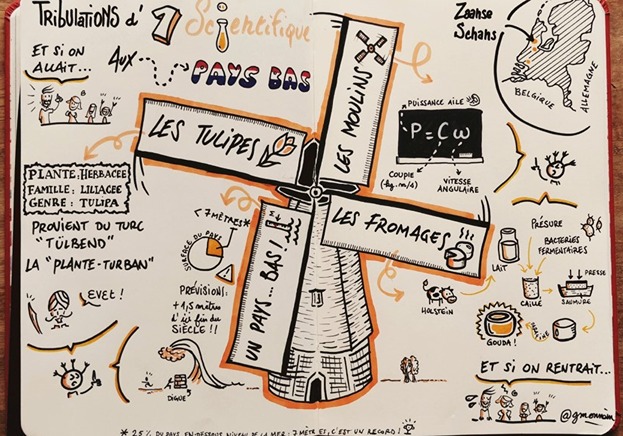 Tribulations d'1 Scientifique
AUX PAYS BAS
ET SI ON
ALLAIT...
Zaanse
Schans
BELGIQUE
ALLEMAGNE
LES TULIPES
LES MOULINS
LES FROMAGES
UN PAYS... BAS!
PLANTE: HERBACEE
FAMILLE: LILIACEE
GENRE: TULIPA
PROVIENT DU TURC
"TÜLBEND"
LA "PLANTE-TURBAN"
EVET!
<7 MÈTRES*
SURFACE DU PAYS
PRÉVISION:
+1,5 mètre
d'ici fin du
SIÈCLE!!
DIGUE
PUISSANCE AILE
P=Cω
COUPLE
VITESSE
ANGULAIRE
PRÉSURE
BACTERIES
FERMENTAIRES
LAIT
HOLSTEIN
CAILLÉ
PRESSE
SAUMURE
GOUDA!
ET SI ON RENTRAIT...
* 25% DU PAYS EN-DESSOUS NIVEAU DE LA MER: 7 MÈTRES, C'EST UN RECORD!